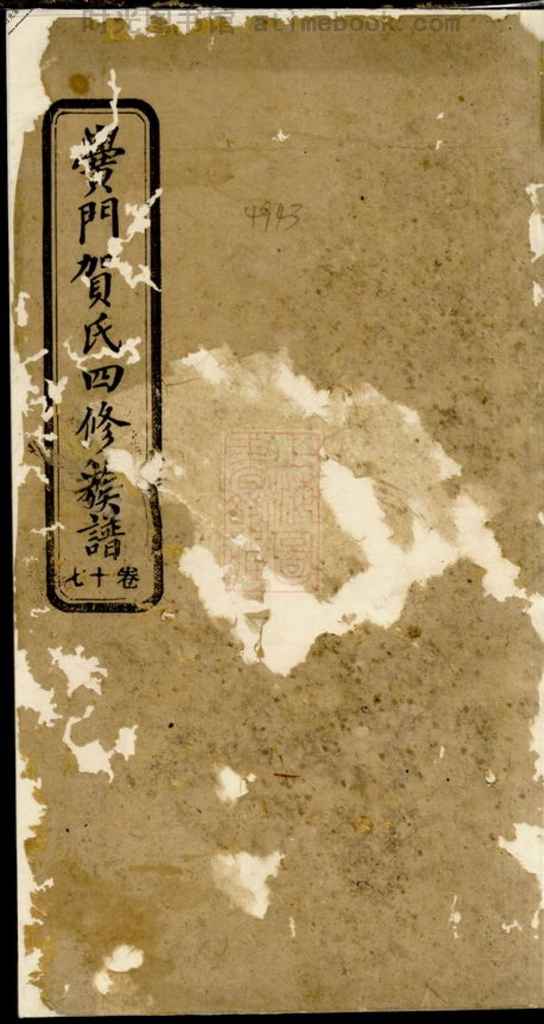 时光图书馆 atimebook.com
黌門賀氏四修族譜
卷十七
4943